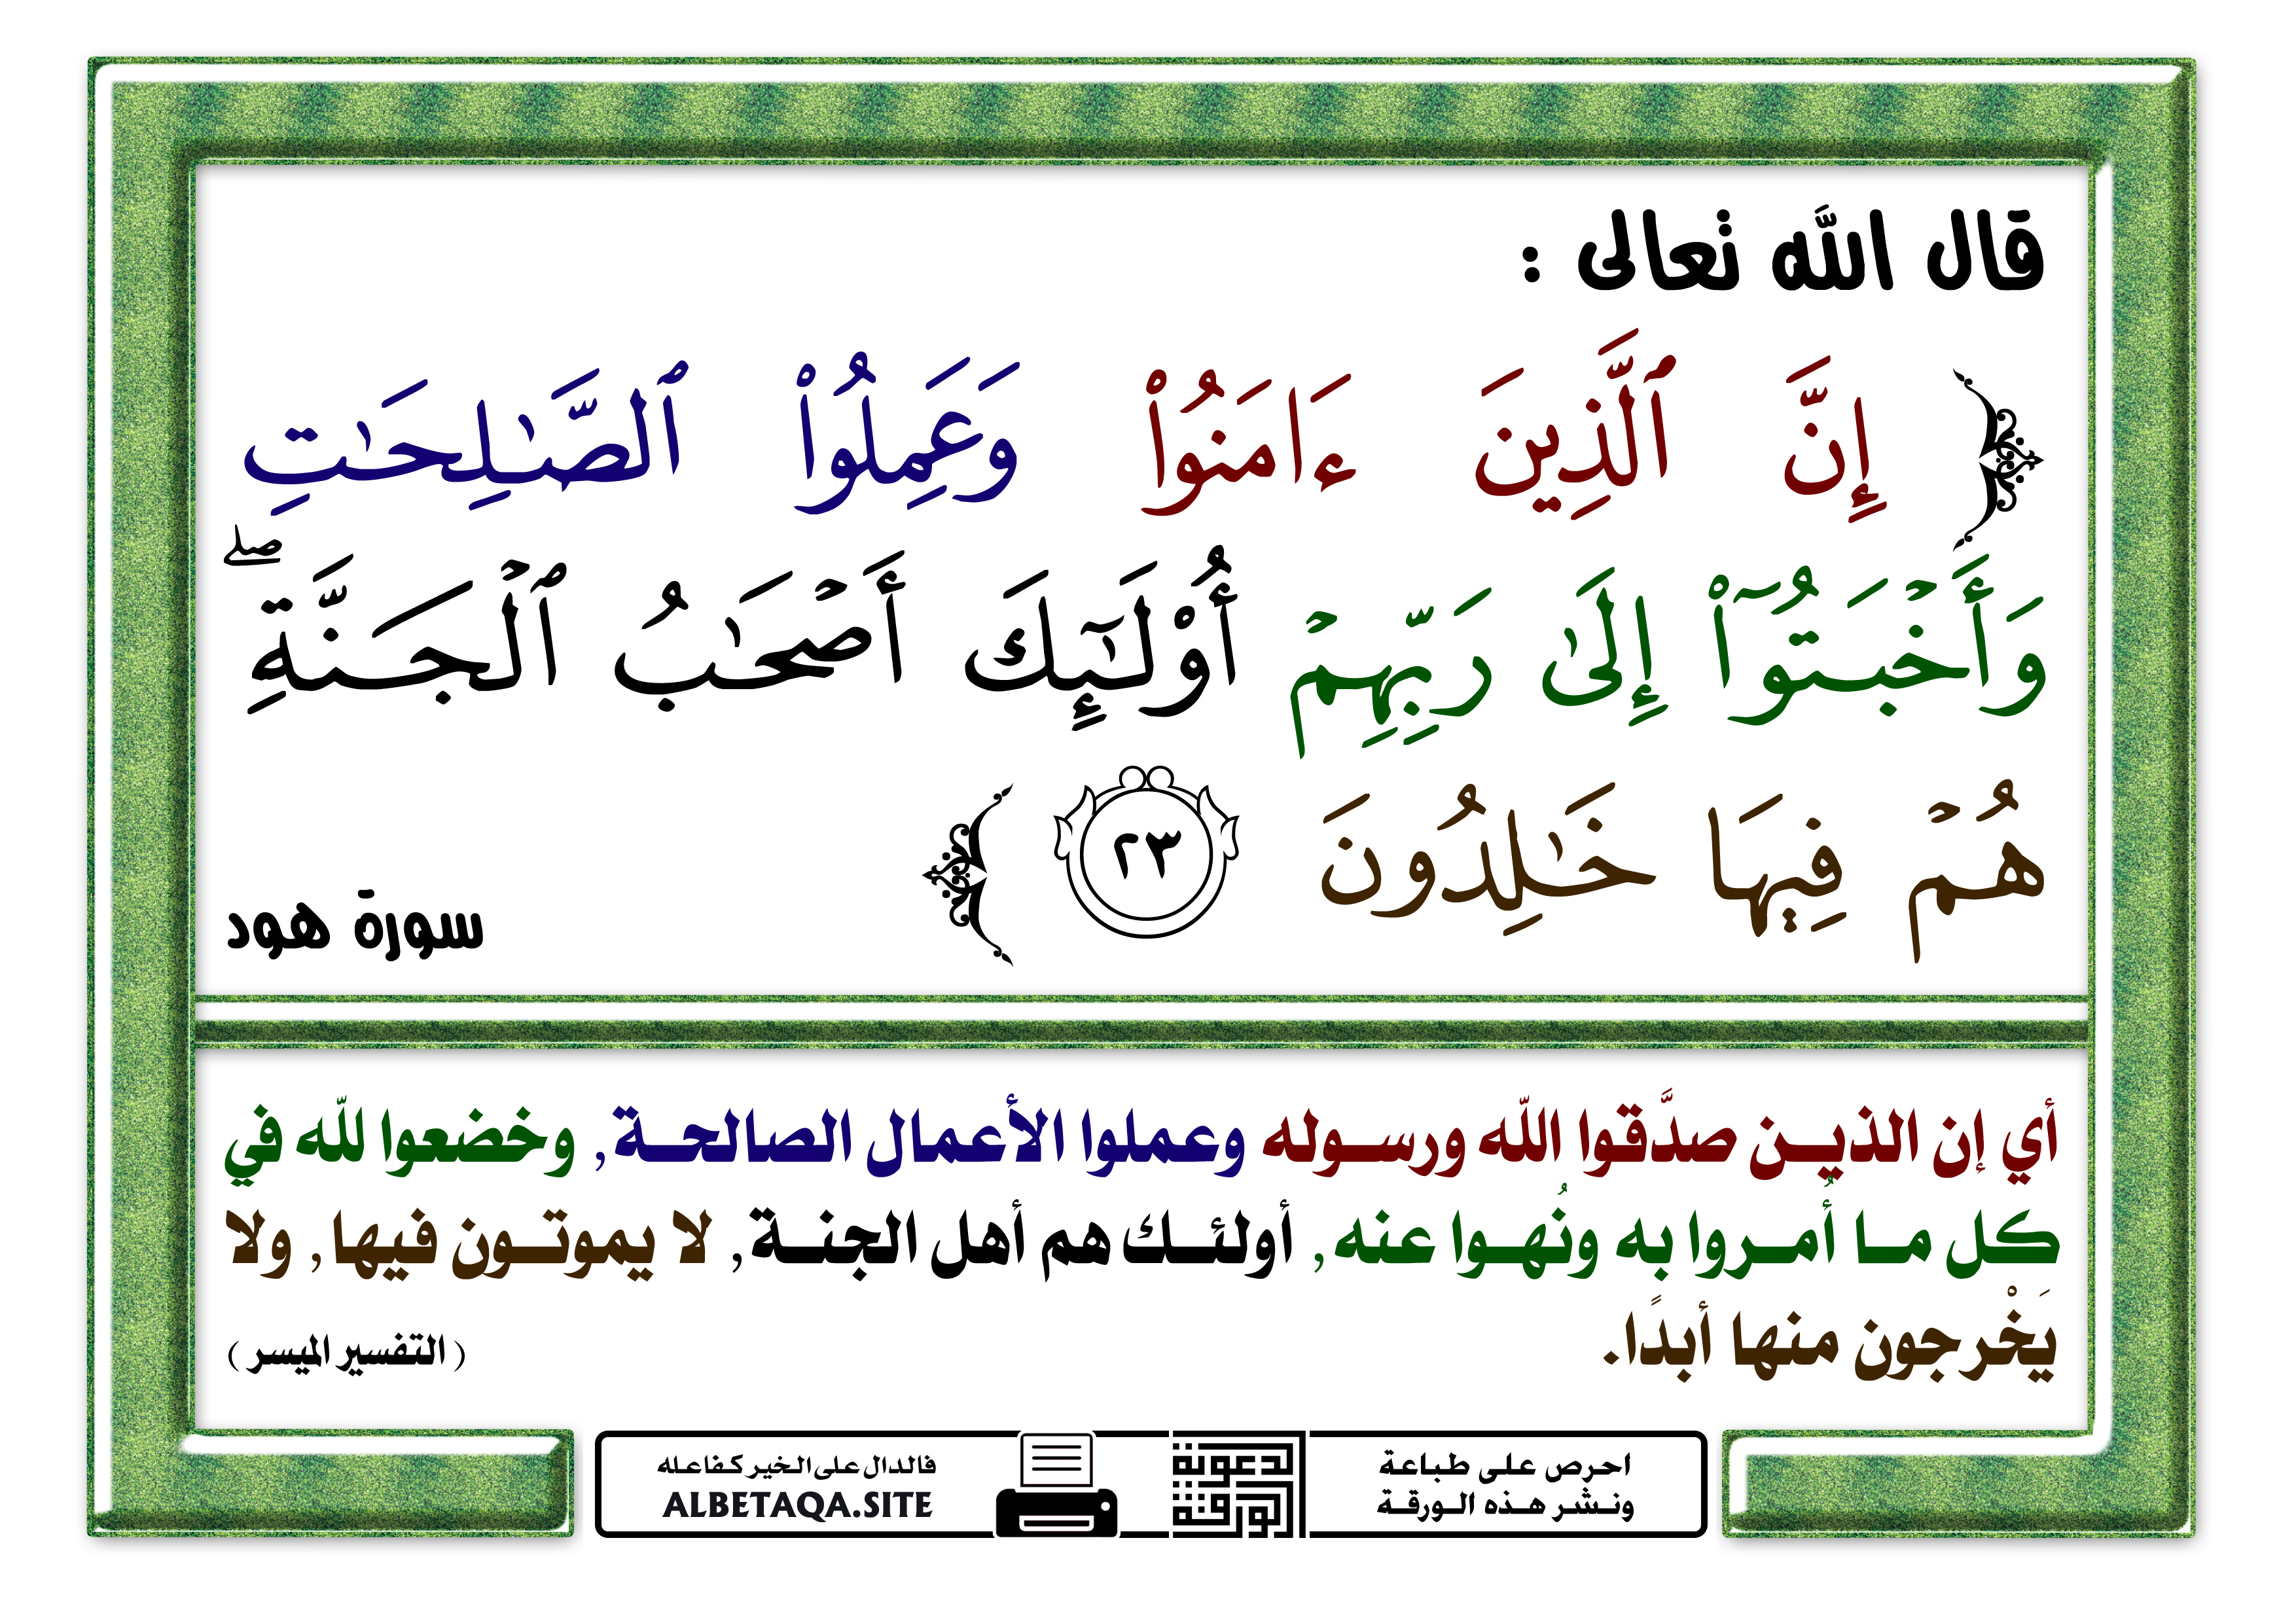 قال الله تعالى :
﴿ إِنَّ ٱلَّذِينَ ءَامَنُوا۟ وَعَمِلُوا۟ ٱلصَّـٰلِحَـٰتِ
وَأَخْبَتُوٓا۟ إِلَىٰ رَبِّهِمْ أُو۟لَـٰٓئِكَ أَصْحَـٰبُ ٱلْجَنَّةِ ۖ
هُمْ فِيهَا خَـٰلِدُونَ ٢٣ ﴾
سورة هود
أي إن الذين صدَّقوا الله ورسوله وعملوا الأعمال الصالحة, وخضعوا لله في
كل ما أُمروا به ونُهوا عنه, أولئك هم أهل الجنة, لا يموتون فيها, ولا
يَخْرجون منها أبدًا.
( التفسير الميسر )
احرص على طباعة
ونشر هذه الورقة
الدعوية
الورقة
فالدال على الخير كفاعله
ALBETAQA.SITE